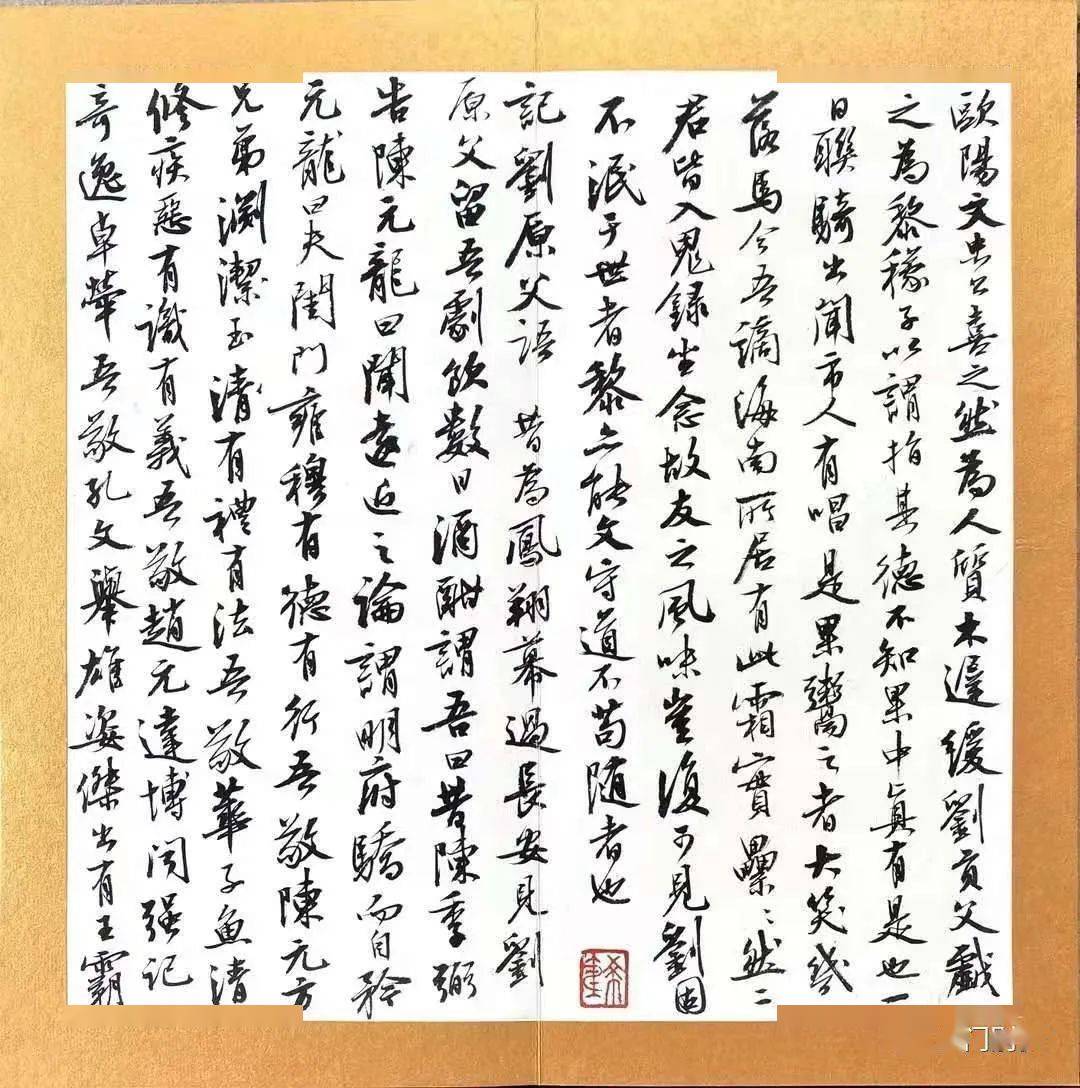 歐陽文忠公喜之然為人質木遲緩劉貢父戲
之為黎檬子以謂指其德不知果中真有是也一
日聯騎出聞市人有唱是果鬻之者大笑幾
落馬今吾謫海南所居有此霜實纍々然二
君皆入鬼錄坐念故友之風味豈復可見劉固
不泯于世者黎亦能文守道不苟随者也
記劉原父語 昔為鳳翔幕過長安見劉
原父留吾劇飲數日酒酣謂吾曰昔陳季弼
告陳元龍曰聞遠近之論謂明府驕而自矜
元龍曰夫閨門雍穆有德有行吾敬陳元方
兄弟渊潔玉清有禮有法吾敬華子魚清
修疾惡有識有義吾敬趙元達博闻强記
奇逸卓犖吾敬孔文舉雄姿傑出有王霸